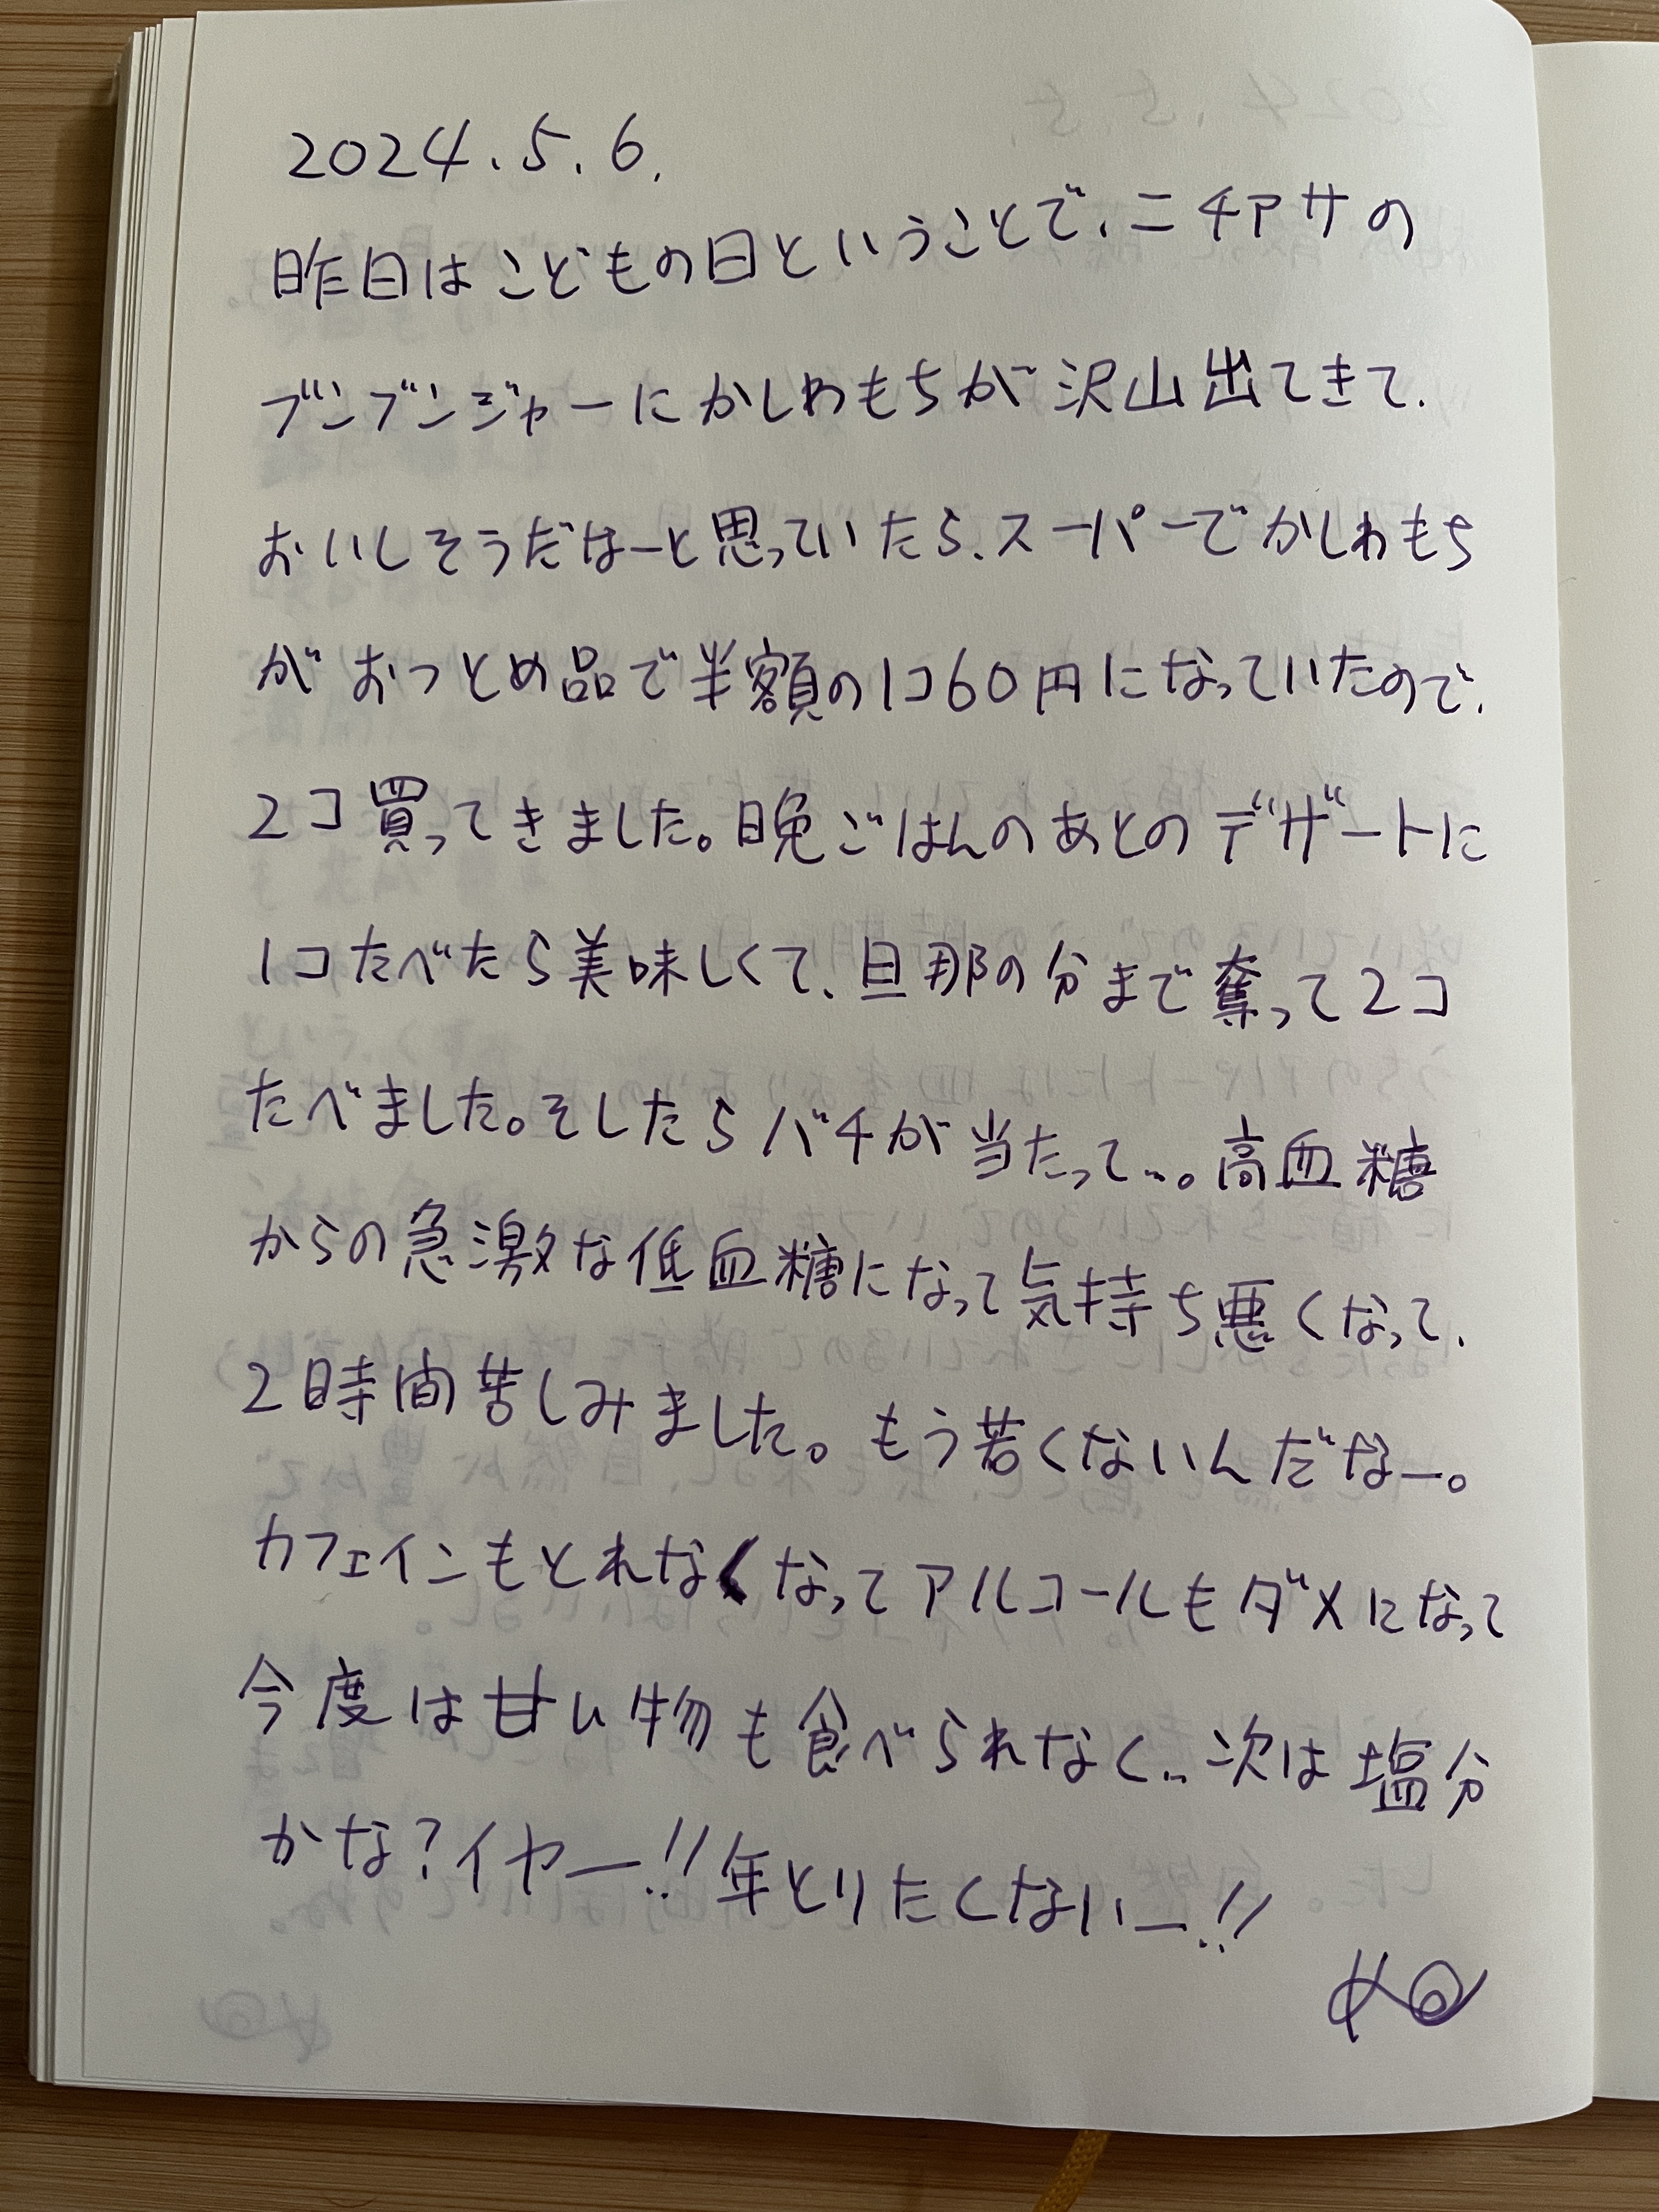 2024.5.6.
昨日はこどもの日ということで、ニチアサの
ブンブンジャーにかしわもちが沢山出てきて、
おいしそうだなーと思っていたら、スーパーでかしわもち
がおつとめ品で半額の1コ60円になっていたので、
2コ買ってきました。晩ごはんのあとのデザートに
1コたべたら美味しくて、旦那の分まで奪って2コ
たべました。そしたらバチが当たって…。高血糖
からの急激な低血糖になって気持ち悪くなって、
2時間苦しみました。もう若くないんだなー。
カフェインもとれなくなってアルコールもダメになって
今度は甘い物も食べられなく‥次は塩分
かな?イヤー!!年とりたくないー!!